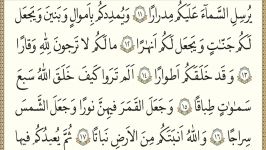 يُرْسِلِ ٱلسَّمَآءَ عَلَيْكُم مِّدْرَارًا ١١ وَيُمْدِدْكُم بِأَمْوَٰلٍ وَبَنِينَ وَيَجْعَل
لَّكُمْ جَنَّٰتٍ وَيَجْعَل لَّكُمْ أَنْهَٰرًا ١٢ مَّا لَكُمْ لَا تَرْجُونَ لِلَّهِ وَقَارًا
١٣ وَقَدْ خَلَقَكُمْ أَطْوَارًا ١٤ أَلَمْ تَرَوْا۟ كَيْفَ خَلَقَ ٱللَّهُ سَبْعَ
سَمَٰوَٰتٍ طِبَاقًا ١٥ وَجَعَلَ ٱلْقَمَرَ فِيهِنَّ نُورًا وَجَعَلَ ٱلشَّمْسَ
سِرَاجًا ١٦ وَٱللَّهُ أَنۢبَتَكُم مِّنَ ٱلْأَرْضِ نَبَاتًا ١٧ ثُمَّ يُعِيدُكُمْ فِيهَا